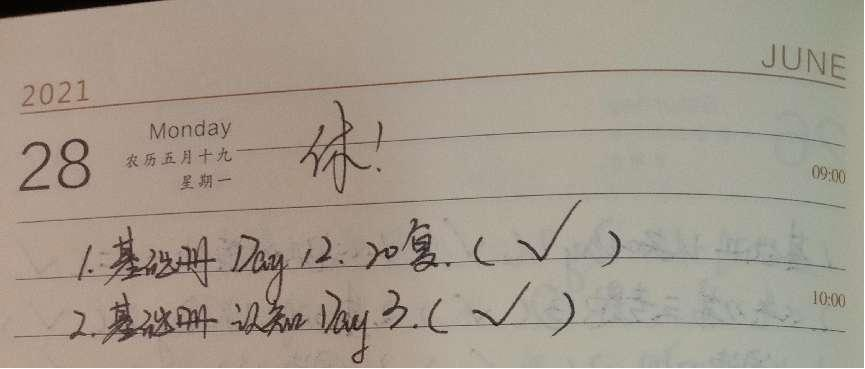 JUNE
2021
28 Monday 休!
农历五月十九
星期一
09:00
1. 基础册 Day 12. 20复. ( ✓ )
10:00
2. 基础册 认知 Day 3. ( ✓ )